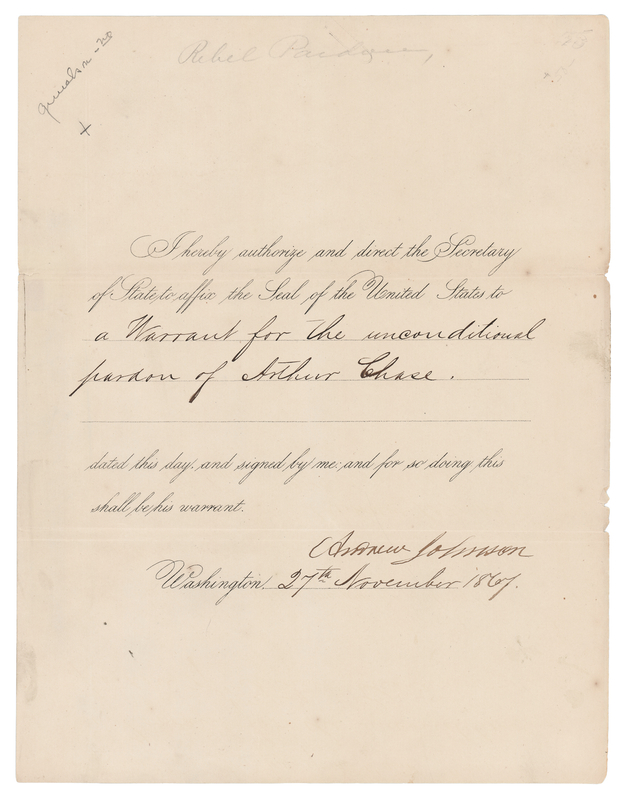 Rebel Pardon,
I hereby authorize and direct the Secretary
of State to affix the Seal of the United States to
a Warrant for the unconditional
pardon of Arthur Chase.
dated this day, and signed by me; and for so doing this
shall be his warrant.
Andrew Johnson
Washington, 27th November 1867.